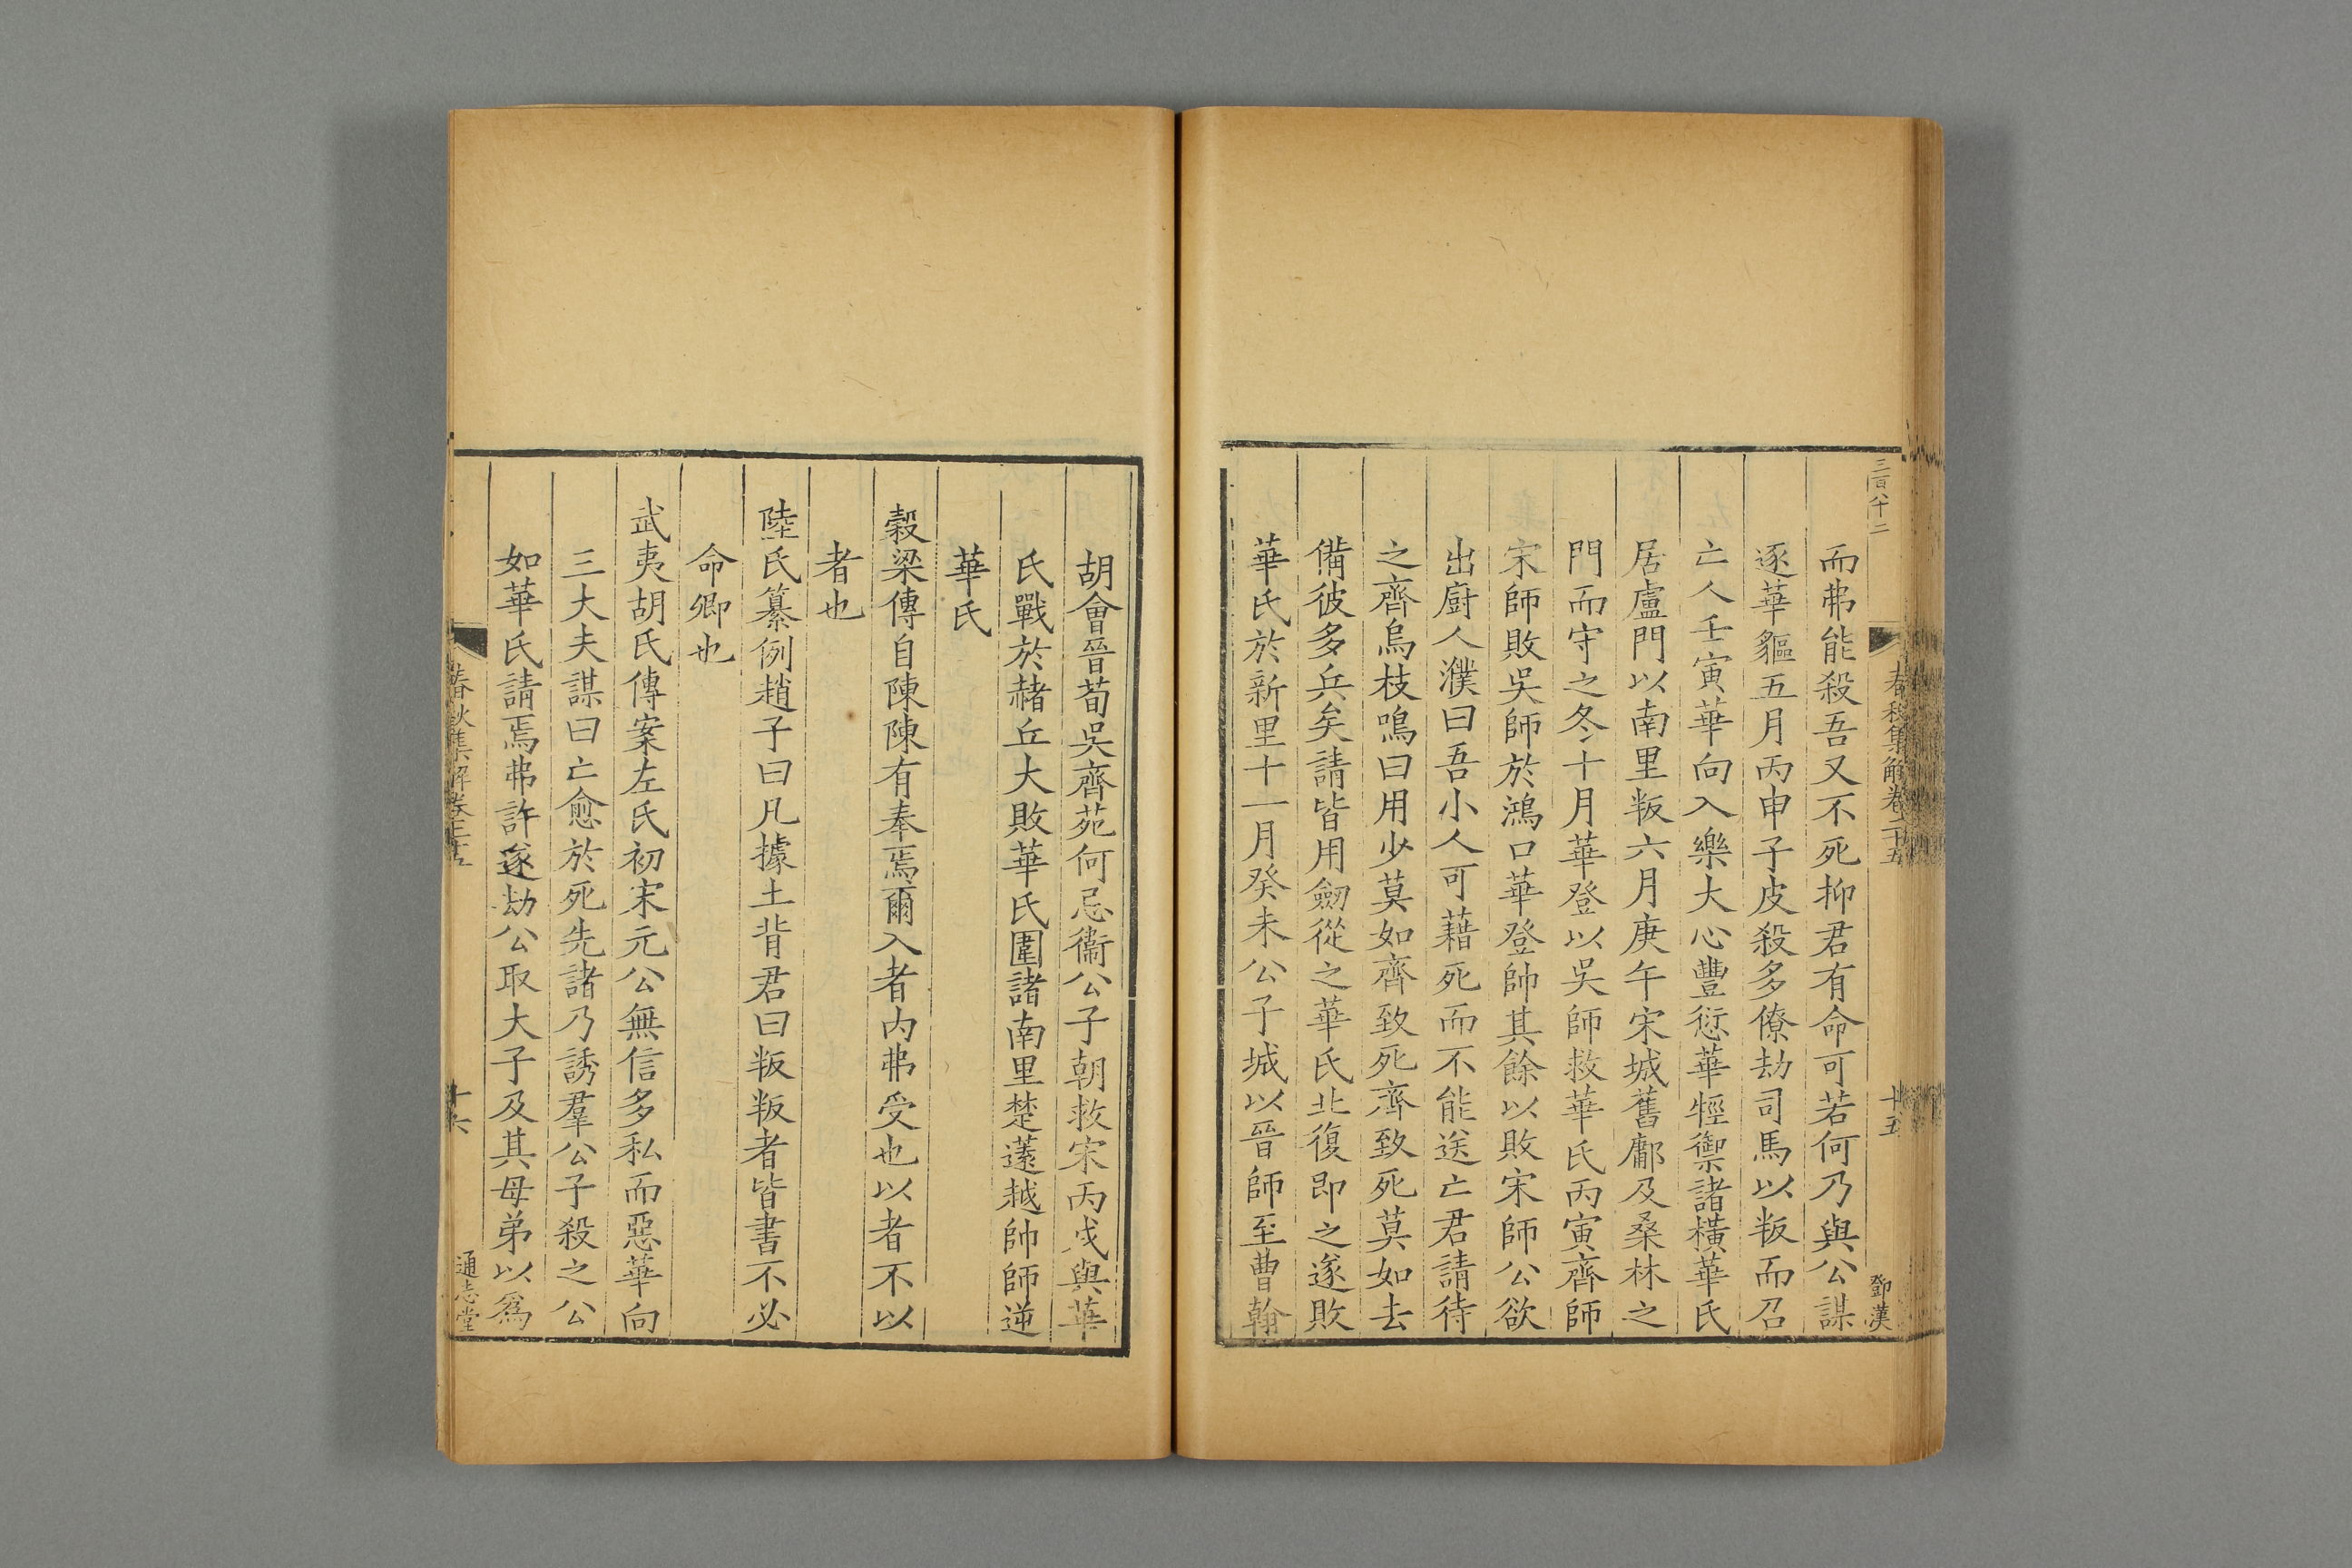 三百八十二
春秋集解卷二十五
十五
鄧漢
而弗能殺吾又不死抑君有命可若何乃與公謀
逐華貙五月丙申子皮殺多僚劫司馬以叛而召
亡人壬寅華向入樂大心豐愆華牼禦諸橫華氏
居盧門以南里叛六月庚午宋城舊鄘及桑林之
門而守之冬十月華登以吳師救華氏丙寅齊師
宋師敗吳師於鴻口華登帥其餘以敗宋師公欲
出廚人濮曰吾小人可藉死而不能送亡君請待
之齊烏枝鳴曰用少莫如齊致死齊致死莫如去
備彼多兵矣請皆用劒從之華氏北復即之遂敗
華氏於新里十一月癸未公子城以晉師至曹翰
胡會晉荀吳齊苑何忌衞公子朝救宋丙戌與華
氏戰於赭丘大敗華氏圍諸南里楚薳越帥師逆
華氏
穀梁傳自陳陳有奉焉爾入者內弗受也以者不以
者也
陸氏纂例趙子曰凡據土背君曰叛叛者皆書不必
命卿也
武夷胡氏傳案左氏初宋元公無信多私而惡華向
三大夫謀曰亡愈於死先諸乃誘羣公子殺之公
如華氏請焉弗許遂劫公取大子及其母弟以爲
春秋集解卷二十五
十六
通志堂